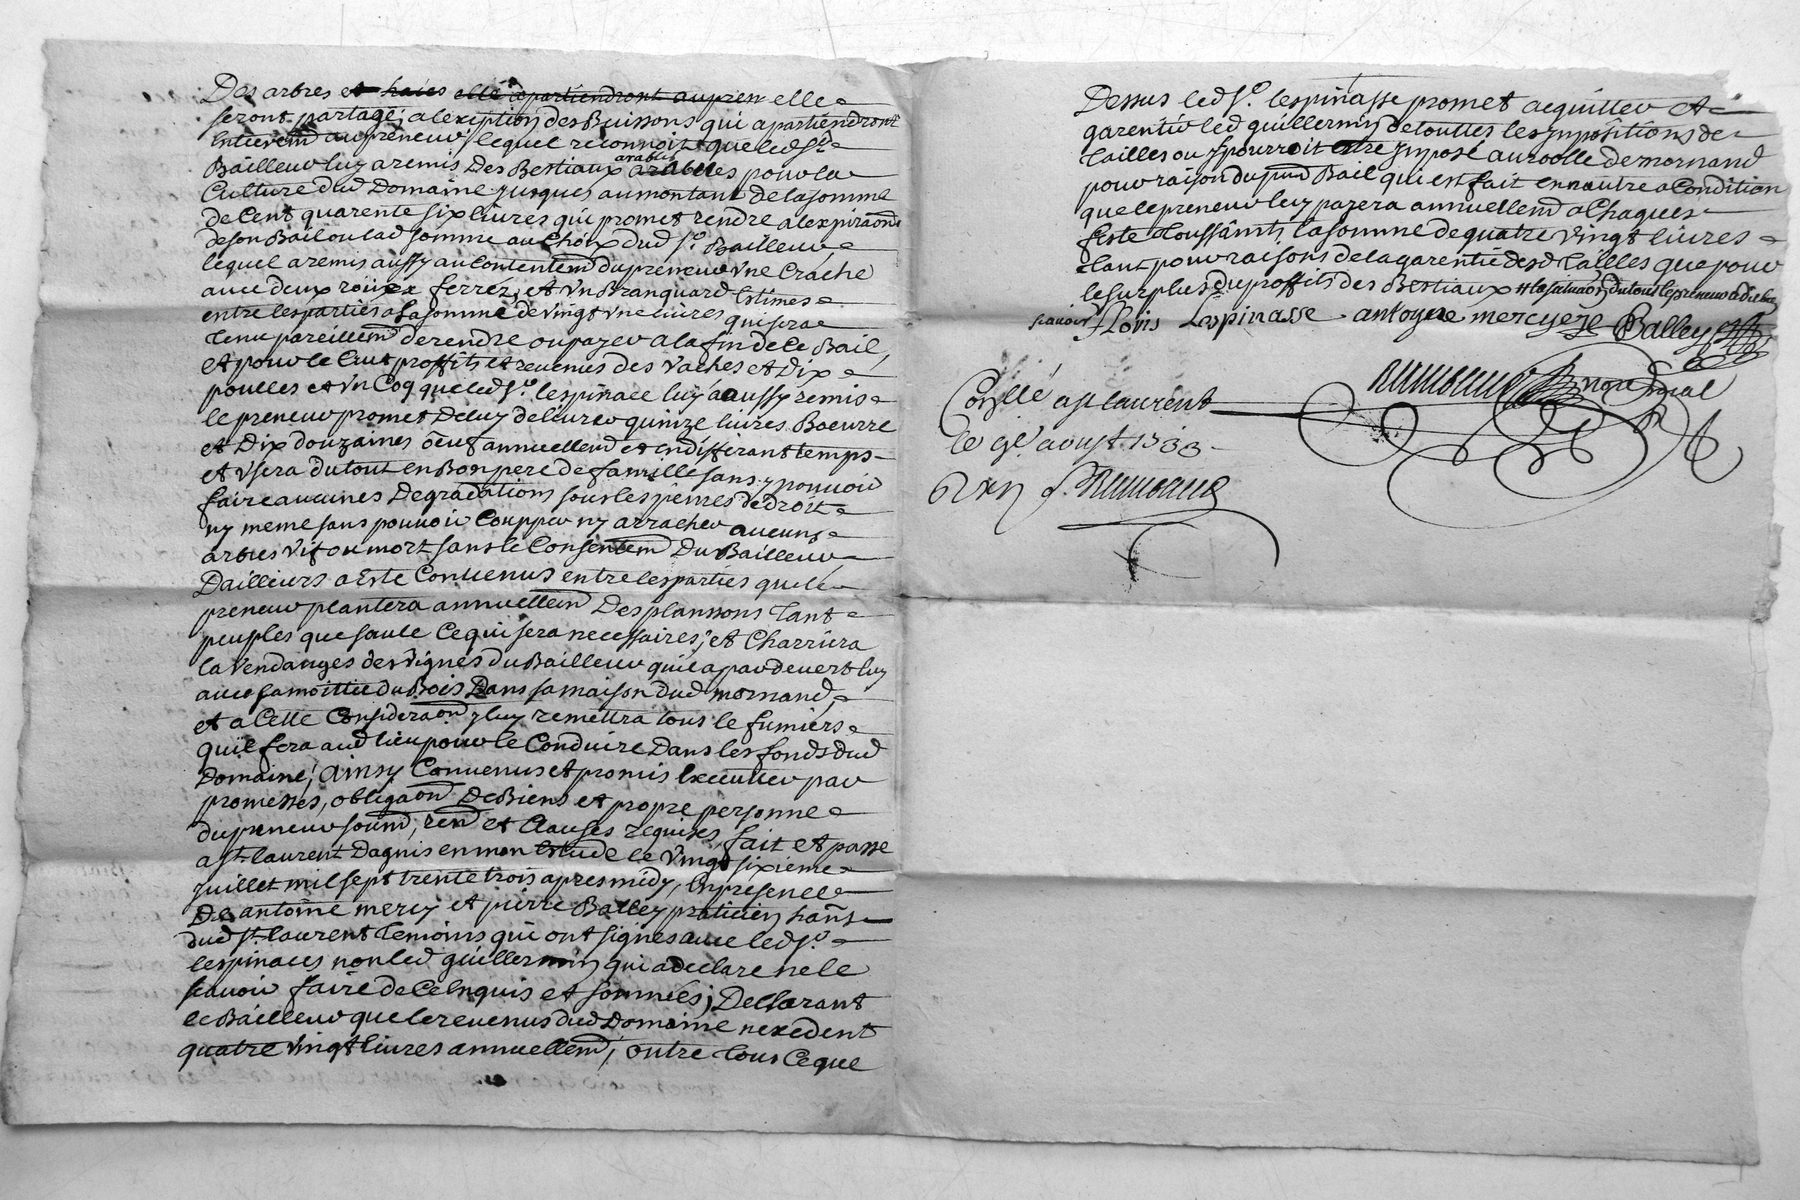 Des arbres et haies elle apartiendront aupren elle
seront partagé, a lexeption des Buissons qui apartiendront
entierem au preneur, lequel reconnoit que led Sr
Bailleur luy a remis des Bestiaux arables arables pour la
Culture dud Domaine jusques au montant de la somme
de Cent quarente six livres qui promet rendre a lexpiraon
de son Bail ou lad somme au Choix dud Sr Bailleur
lequel a remis aussy au Contentem du preneur Vne Crache
avec deux roües ferrez, et Vn Branquard Estimes
entre les parties a la somme de vingt vne livres qui sera
tenu pareillem de rendre ou payer a la fin de Ce Bail,
et pour le Cru proffits et revenus des Vaches et Dix
poulles et Vn Coq que led Sr lespinace luy a aussy remis
le preneur promet De luy delivrer quinze livres Boeurre
et Dix douzaines oeuf annuellem et indifferant temps
et Vsera du tout en Bon pere de famille sans y pouvoir
faire aucunes Degradations sous les peines de Droit
ny meme sans pouvoir Coupper ny arracher aucuns
arbres Vif ou mort sans le Consentem Du Bailleur
Dailleurs a Este Convenus entre les parties que le
preneur plantera annuellem Des planssons tant
peuples que saule Ce qui sera necessaires, et Charriera
la Vendanges des Vignes du Bailleur qu'il a par devert luy
avec la moittie du Bois Dans sa maison dud mornand,
et a Cette Consideraon y luy remettra tous le fumiers
qu'il fera aud lieu pour le Conduire Dans les fonds dud
Domaine, Ainsy Convenus et promis Executer par
promesses, obligaon De Biens et propre personne
du preneur soum, ren et Clauses requises, fait et passe
a St Laurent Dagnis en mon Estude le Vingt sixieme
Juillet mil sept trente trois apres midy, En presence
De antoine mercy et pierre Balley praticien hans
dud St Laurent temoins qui ont signes avec led Sr
lespinaces non led guillermin qui a declare ne le
scavoir faire de Ce Enquis et sommés; Declarant
le Bailleur que le revenus dud Domaine nexedent
quatre vingt livres annuellem, outre tous Ce que
Dessus led Sr lespinasse promet acquitter et
garentir led guillermin de touttes les jmpositions de
tailles ou y pourroit etre jmposé au roolle de mornand
pour raison du pnt Bail qui est fait en nautre a Condition
que le preneur luy payera annuellem a Chaques
feste toussaints la somme de quatre Vingt livres
tant pour raisons de la garentie desd tailles que pour
le surplus du proffits des Bestiaux du tout le preneur a declare
scavoir Lovis Lespinasse antoyne mercyer Balley
not Royal
Conllé a St Laurent
le 9e aoust 1733